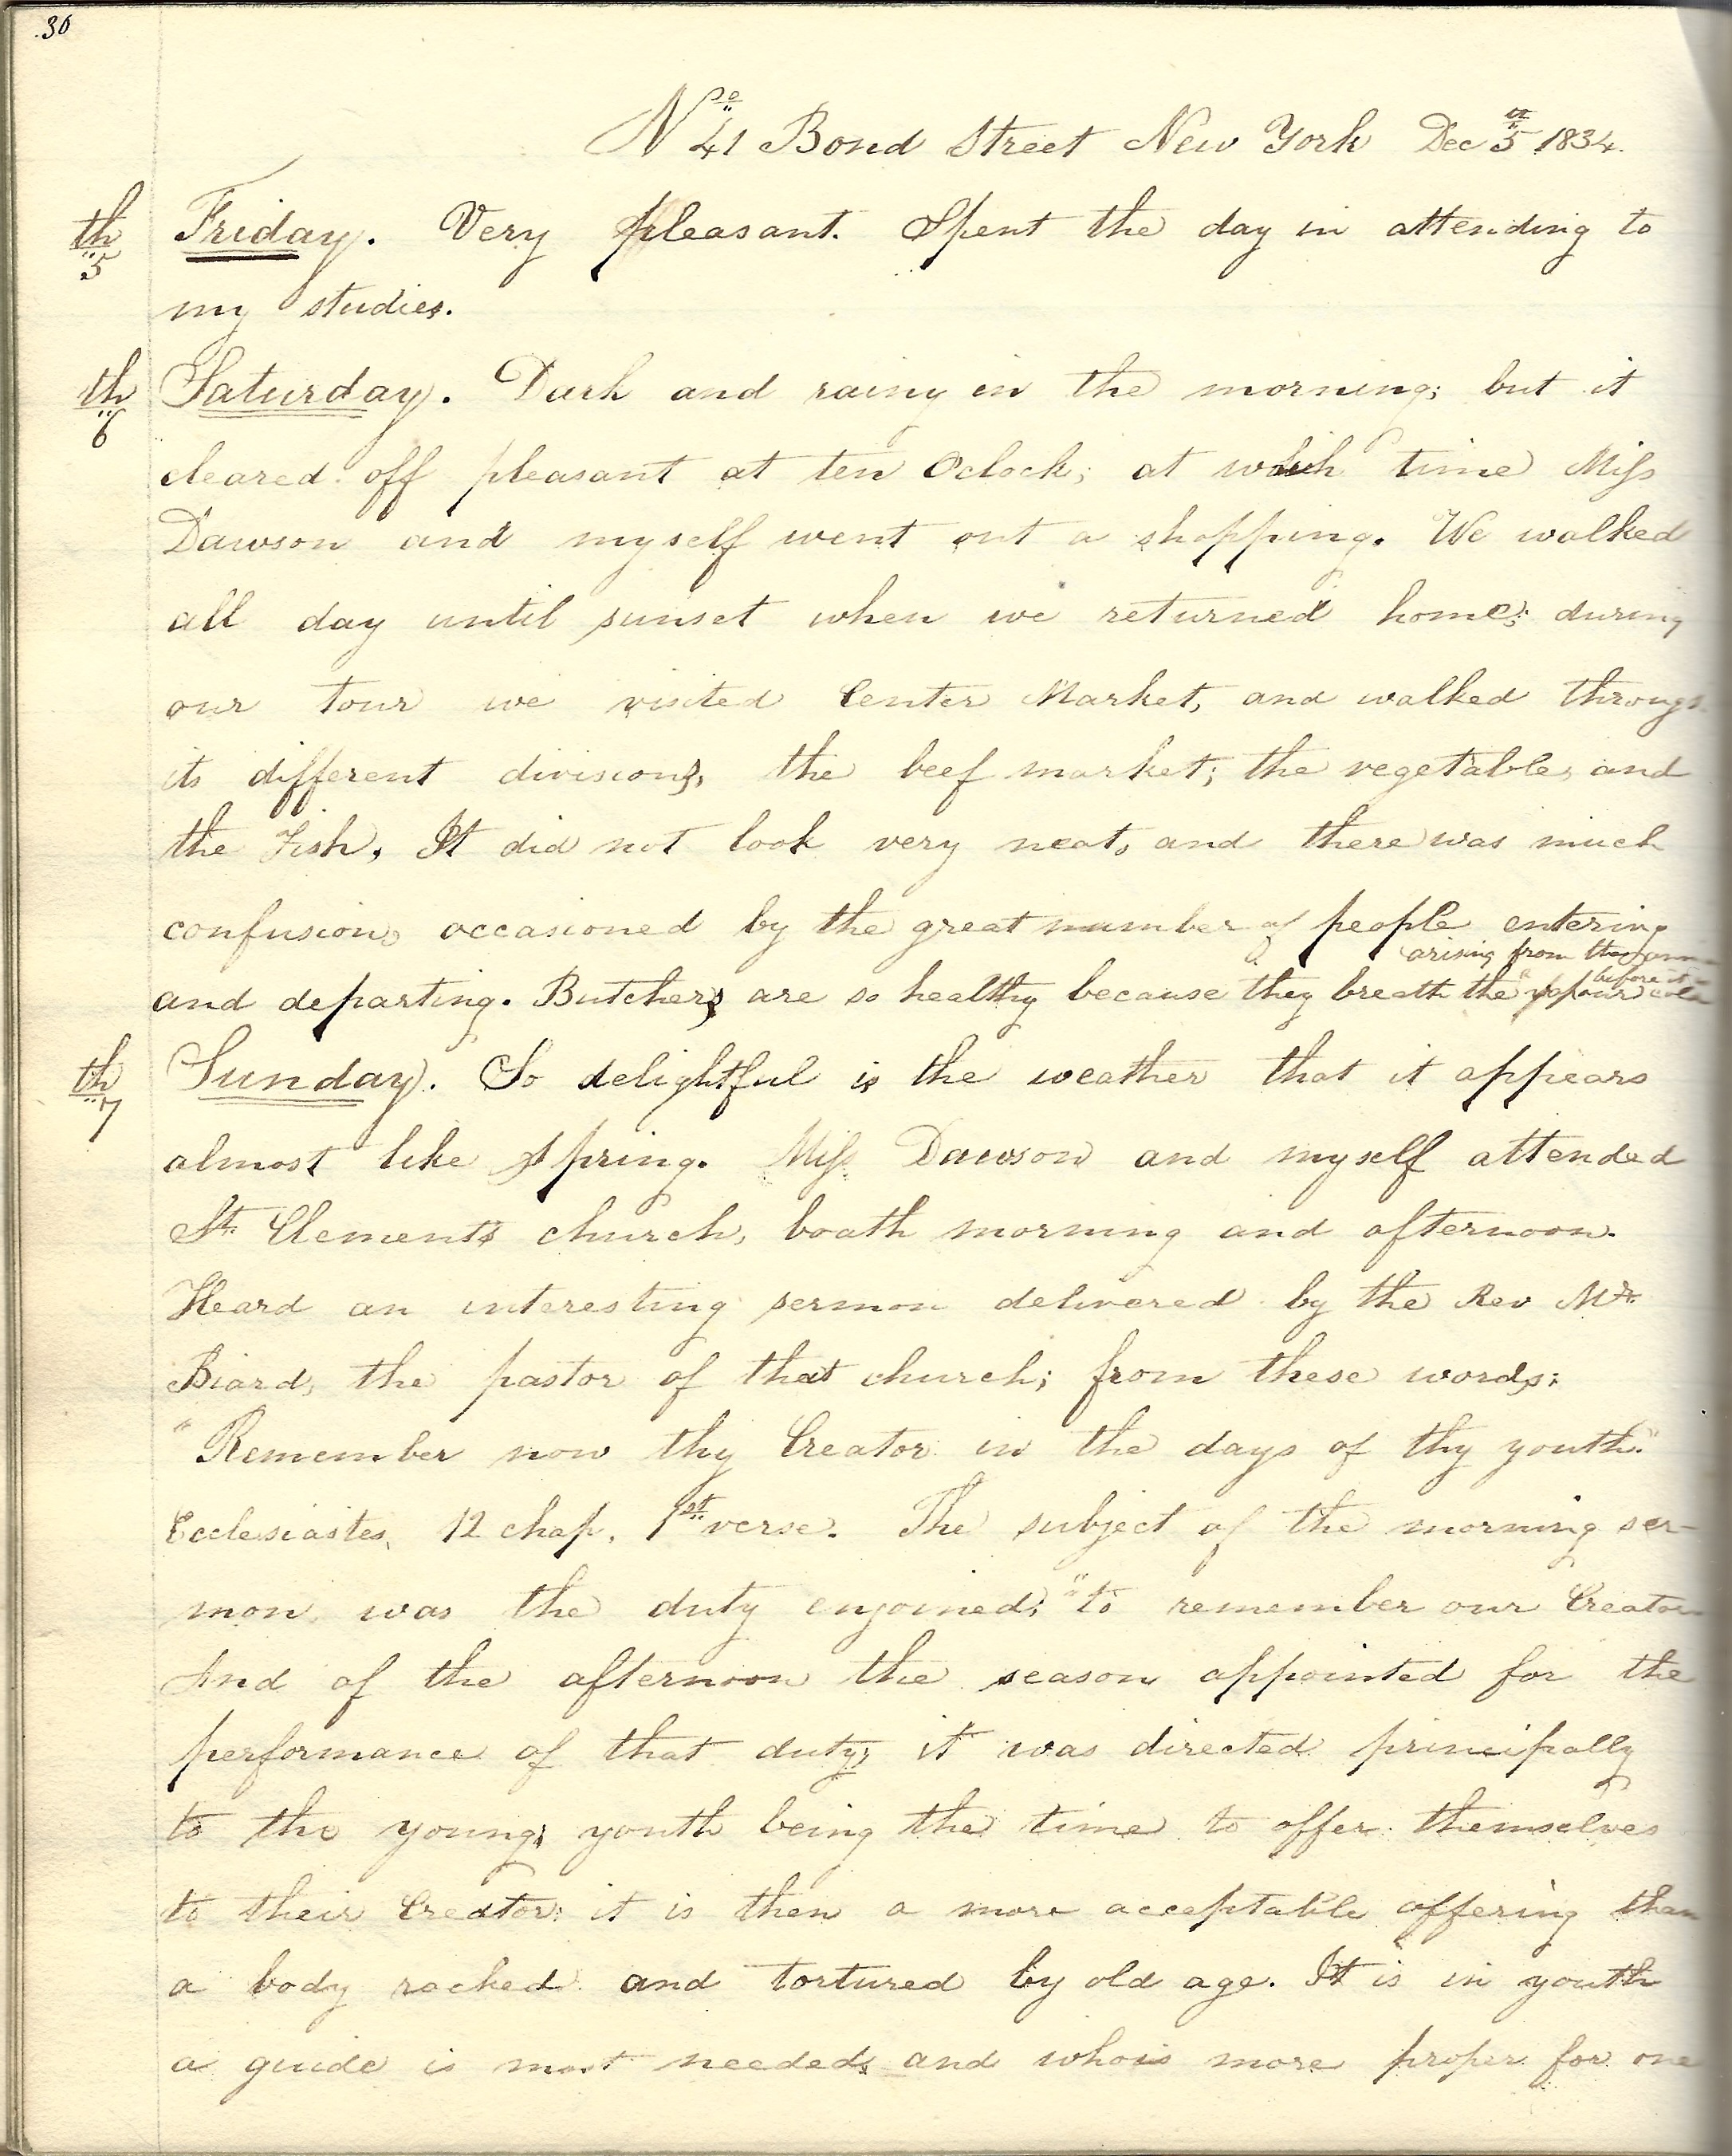 36
No 41 Bond Street New York Dec 5th 1834.
th 5 Friday. Very pleasant. Spent the day in attending to
my studies.
th 6 Saturday. Dark and rainy in the morning; but it
cleared off pleasant at ten Oclock; at which time Miss
Dawson and myself went out a shopping. We walked
all day until sunset when we returned home; during
our tour we visited Center Market, and walked through
its different divisions, the beef market; the vegetable, and
the Fish. It did not look very neat, and there was much
confusion, occasioned by the great number of people entering
arising from the
and departing. Butchers are so healthy because they breath the vapour before it
th 7 Sunday. So delightful is the weather that it appears
almost like Spring. Miss Dawson and myself attended
St. Clements church, boath morning and afternoon.
Heard an interesting sermon delivered by the Rev Mr.
Biard, the pastor of that church; from these words;
"Remember now thy Creator in the days of thy youth."
Ecclesiastes, 12 chap. 1st verse. The subject of the morning ser-
mon, was the duty enjoined; "to remember our Creator
And of the afternoon the season appointed for the
performance of that duty; it was directed principally
to the young; youth being the time to offer themselves
to their Creator; it is then a more acceptable offering than
a body racked and tortured by old age. It is in youth
a guide is most needed, and who is more proper for one